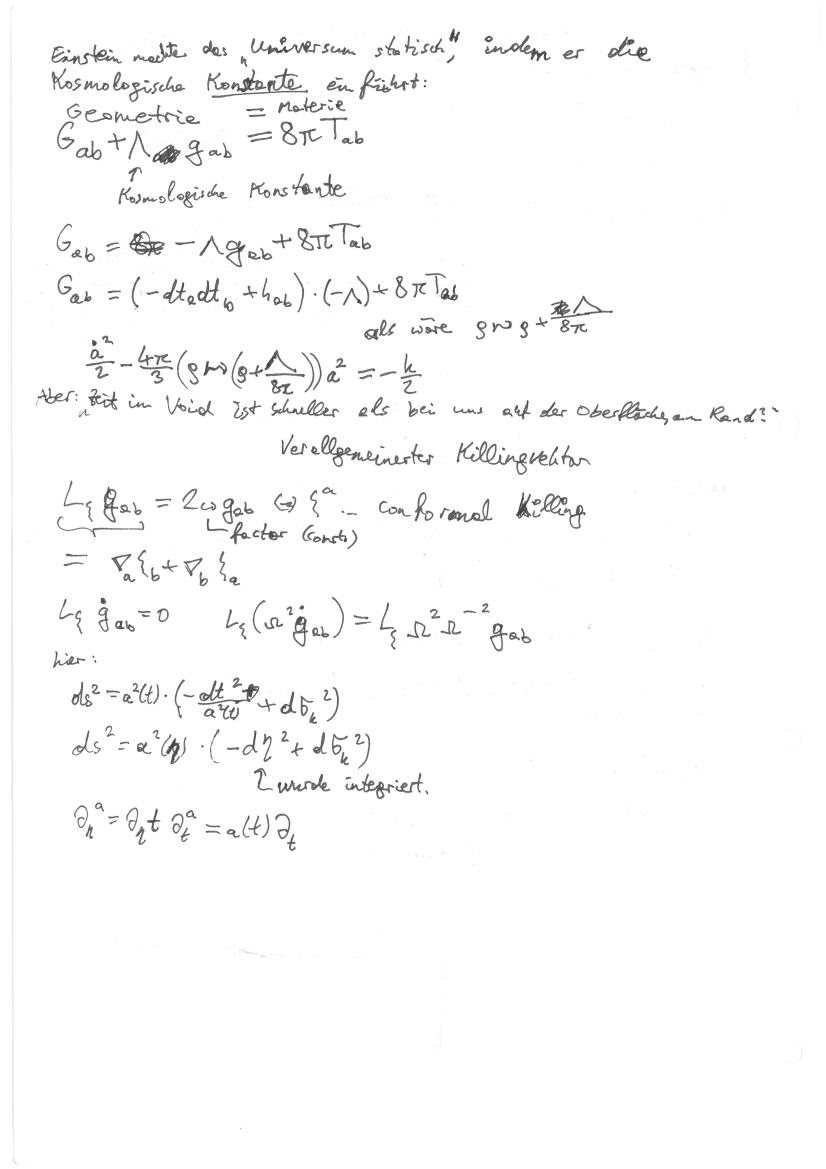 Einstein machte das „Universum statisch", indem er die
Kosmologische Konstante einführt:
Geometrie = Materie
G_ab + Λ g_ab = 8π T_ab
↑
Kosmologische Konstante
G_ab = - Λ g_ab + 8π T_ab
G_ab = (-dt_a dt_b + h_ab) · (-Λ) + 8π T_ab
als wäre ρ ↝ ρ + Λ/8π
ȧ²/2 - 4π/3 (ρ ↝ (ρ + Λ/8π)) a² = - k/2
Aber: „Zeit im Void ist schneller als bei uns auf der Oberfläche, am Rand?"
Verallgemeinerter Killingvektor
L_ξ g_ab = 2ω g_ab ⇔ ξ^a … conformal Killing
factor (const)
= ∇_a ξ_b + ∇_b ξ_a
L_ξ ġ_ab = 0 L_ξ (Ω² ġ_ab) = L_ξ Ω² Ω^-2 g_ab
hier:
ds² = a²(t) · (- dt²/a²(t) + dσ_k²)
ds² = a²(η) · (-dη² + dσ_k²)
↑ wurde integriert.
∂_η^a = ∂_η t ∂_t^a = a(t) ∂_t